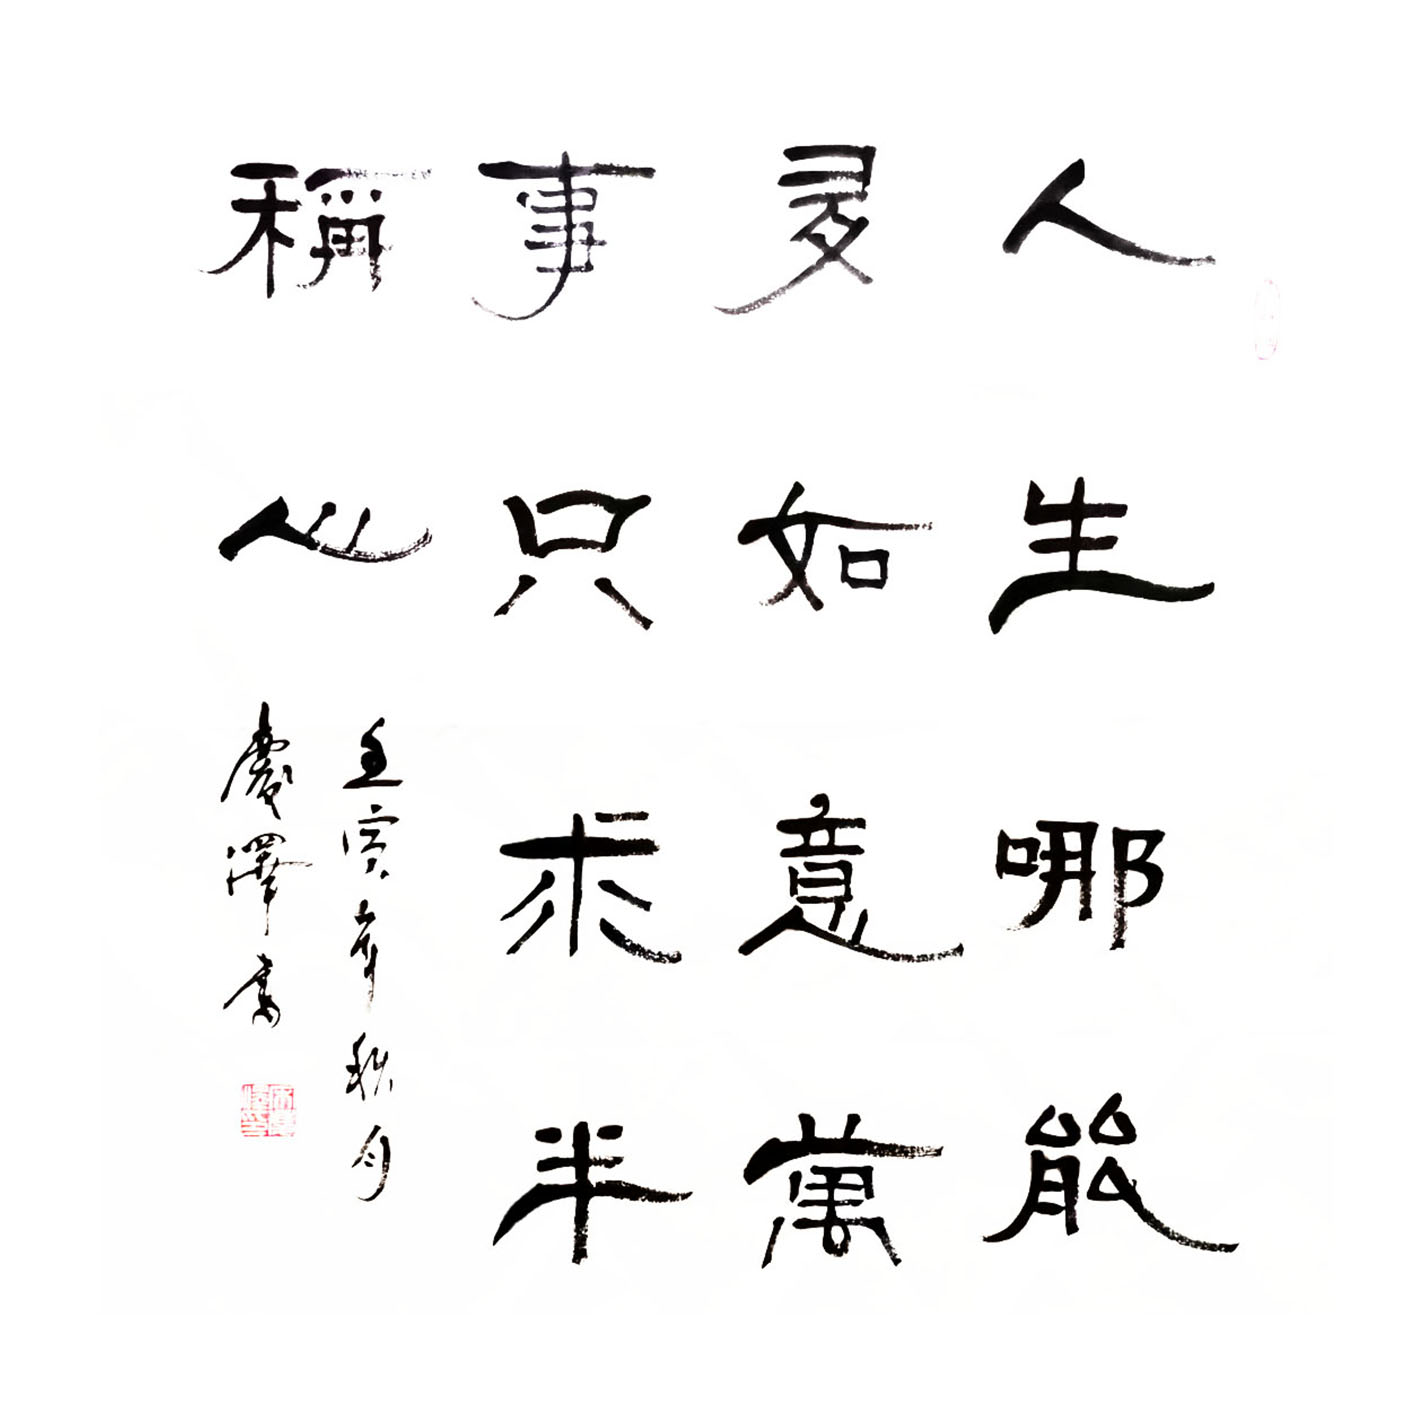 人生哪能
多如意萬
事只求半
稱心
壬寅年秋月
慶澤書